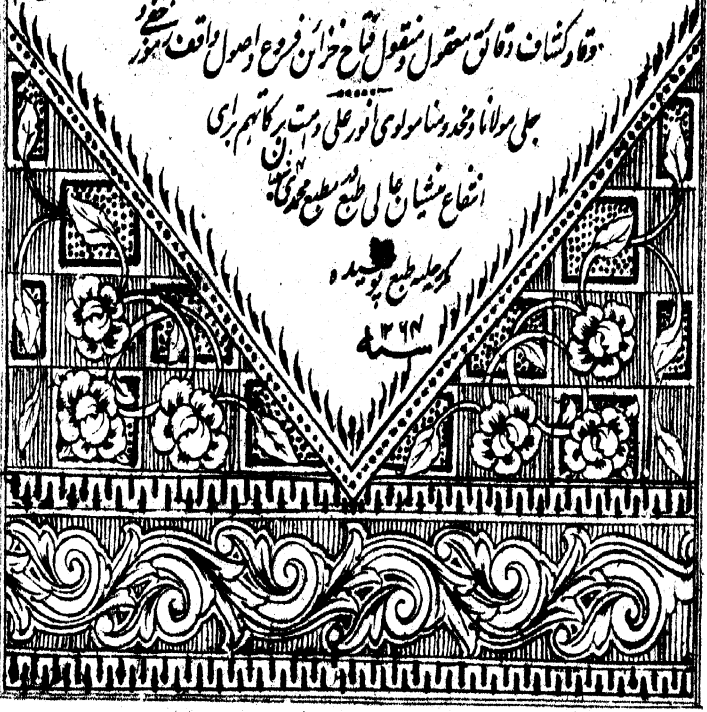 وقاد کشاف دقائق معقول و منقول مفتاح خزائن فروع و اصول واقف رموز خفی و
جلی مولانا و مخدومنا مولوی انور علی دامت برکاتهم برای
انتفاع منشیان عالی طبع در مطبع محمدی
مکرر حلیه طبع پوشیده
سنه ۱۲۶۳